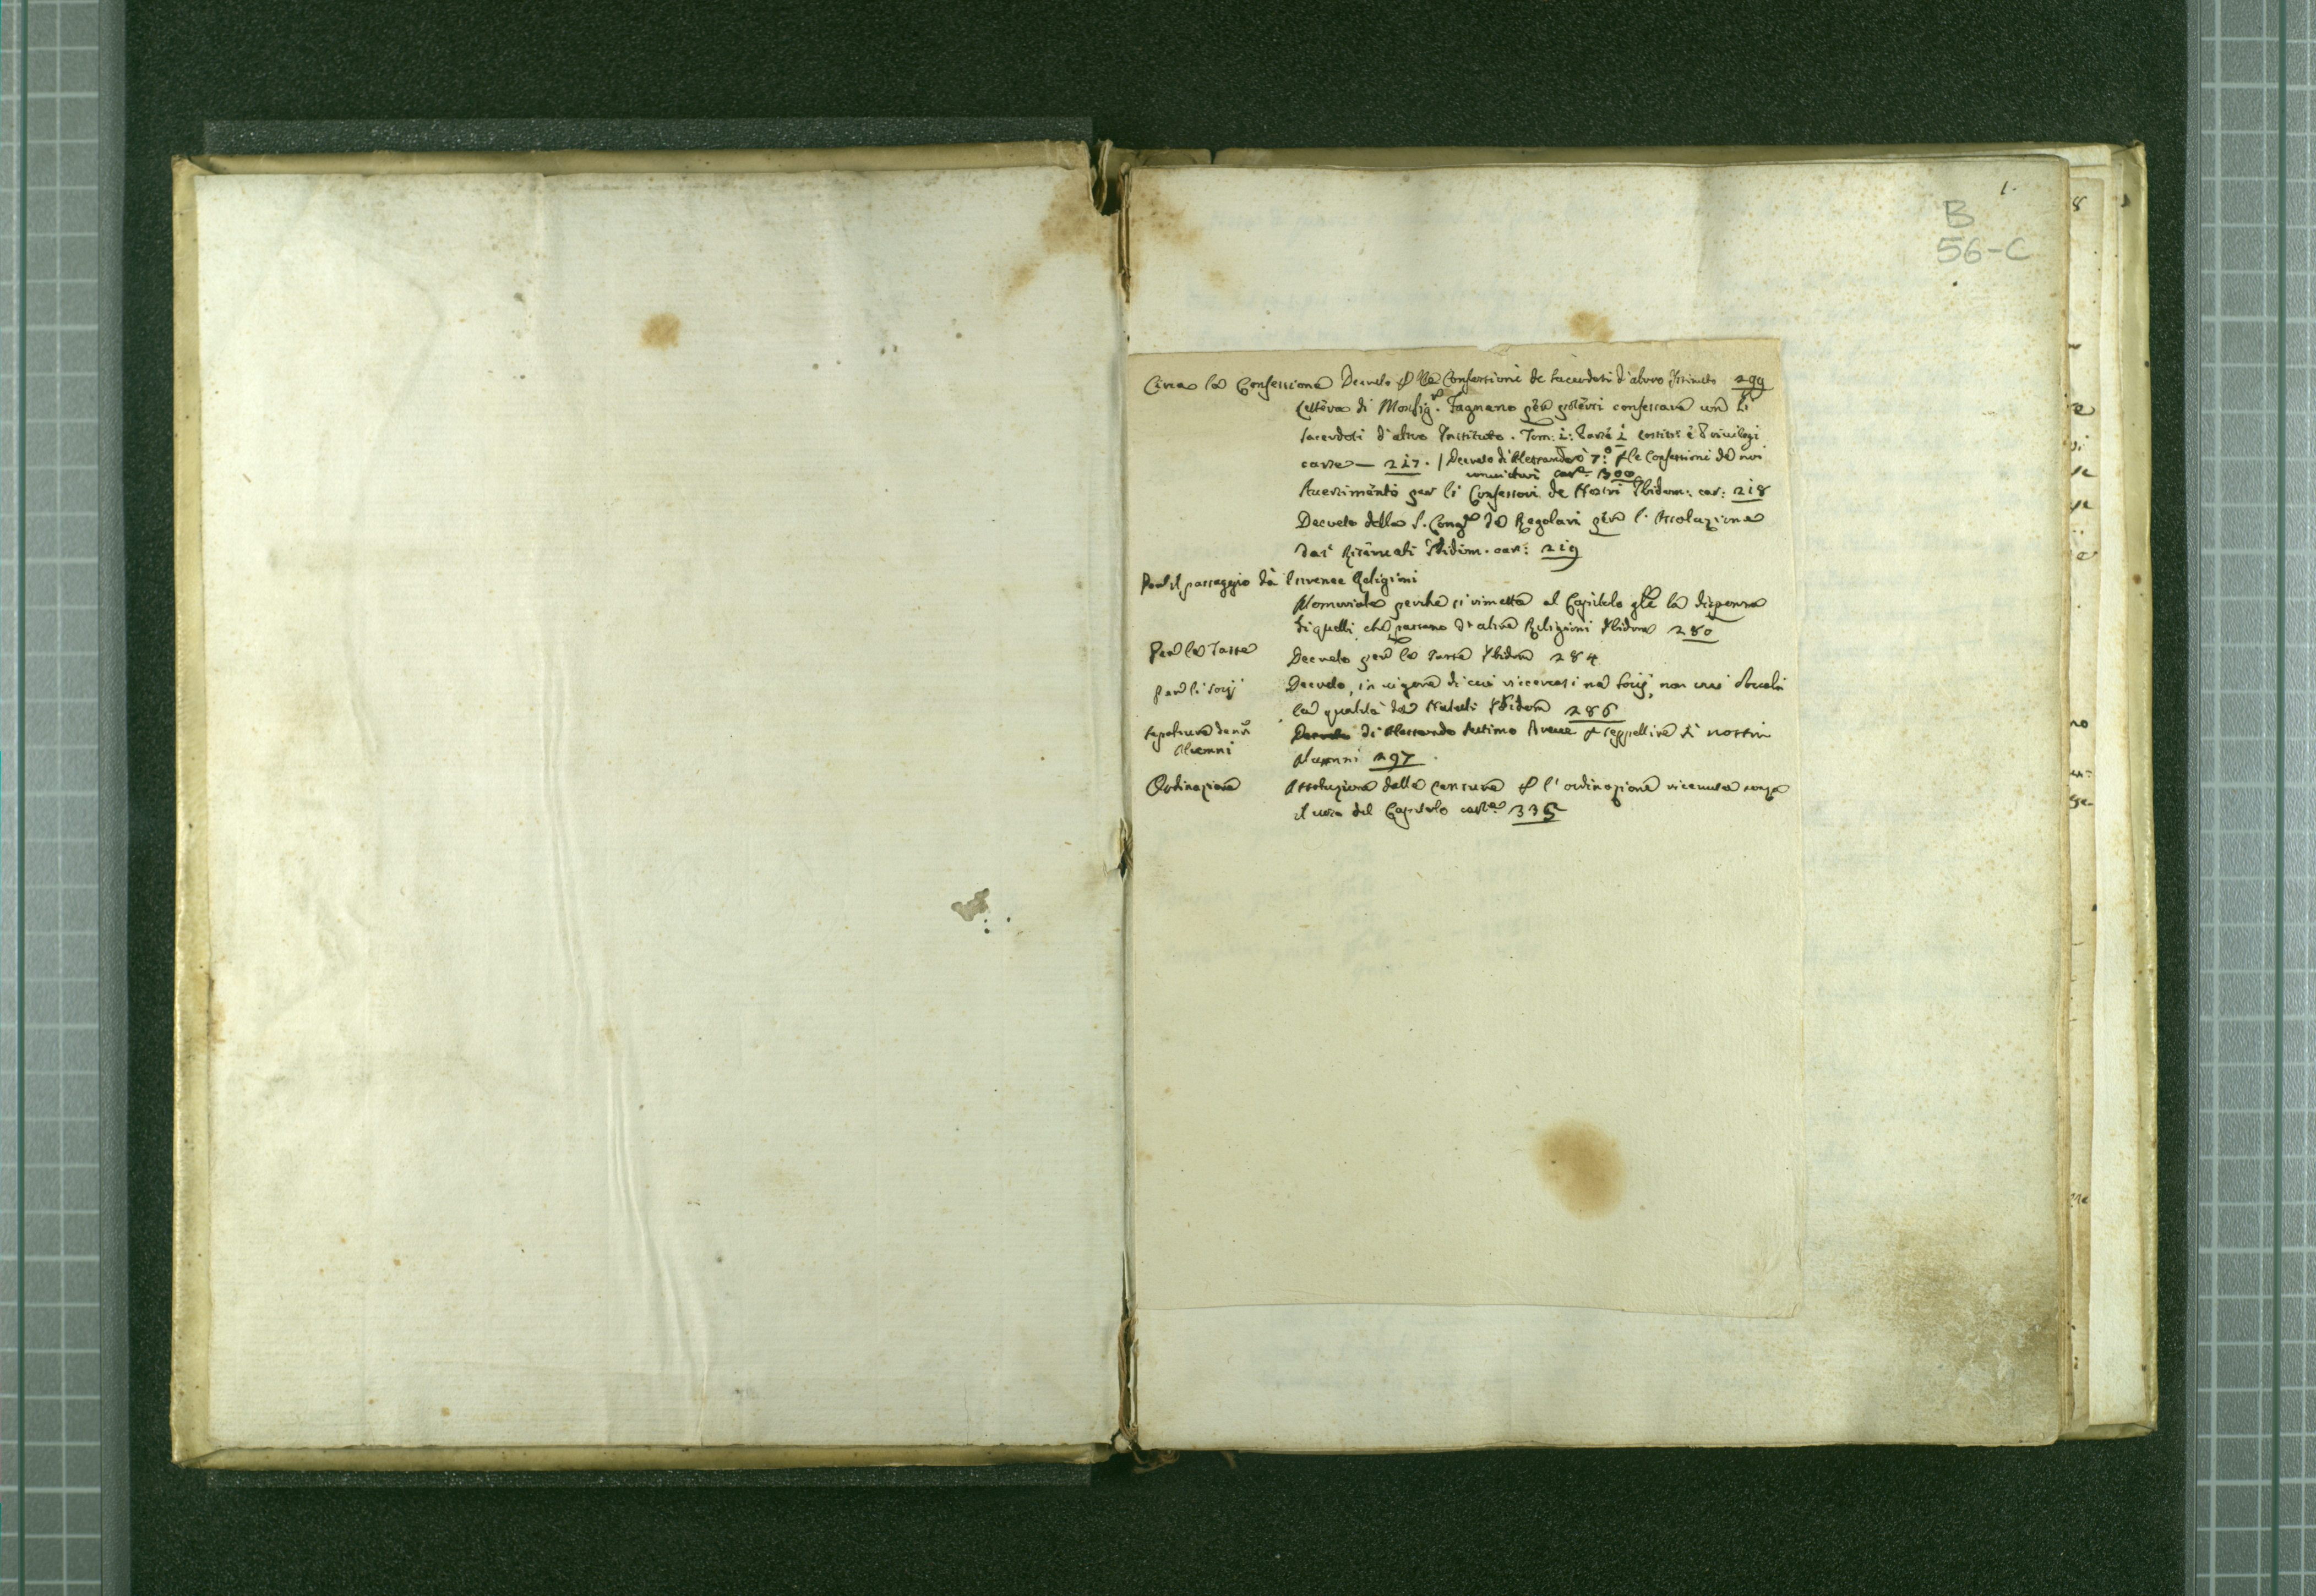 1.
B
56-C
Circa la Confessione Decreto p le Confessioni de sacerdoti d'altro Istituto 299
Lettera di Monsig.r Fagnano per poterci confessare con li
sacerdoti d'altro Instituto. Tom: i: Parte i Costit: e Privilegi
carte — 217. / Decreto di Alessandro 7.o p le Confessioni de noi
car.e 300
Avertimento per li Confessori de Nostri Ibidem: car: 218
Decreto della S. Cong.e de Regolari per l'Assoluzione
dai Riservati Ibidem. car: 219
Per il passaggio da Religioni
Memoriale perche si rimetta al Capitolo gle la dispensa
di quelli, che passano da altre Religioni Ibidem 280
Per le Tasse Decreto per le Tasse Ibidem 284
per li Socij Decreto, in vigore di cui ricercasi ne Socij, non
la qualità de Natali Ibidem 286
sepoltura de nri Decreto di Alessandro Settimo Breve p seppellire li nostri
Alumni Alumni 297
Ordinazione Assoluzione dalla Censura p l'ordinazione ricevuta senza
il del Capitolo carte 335
8